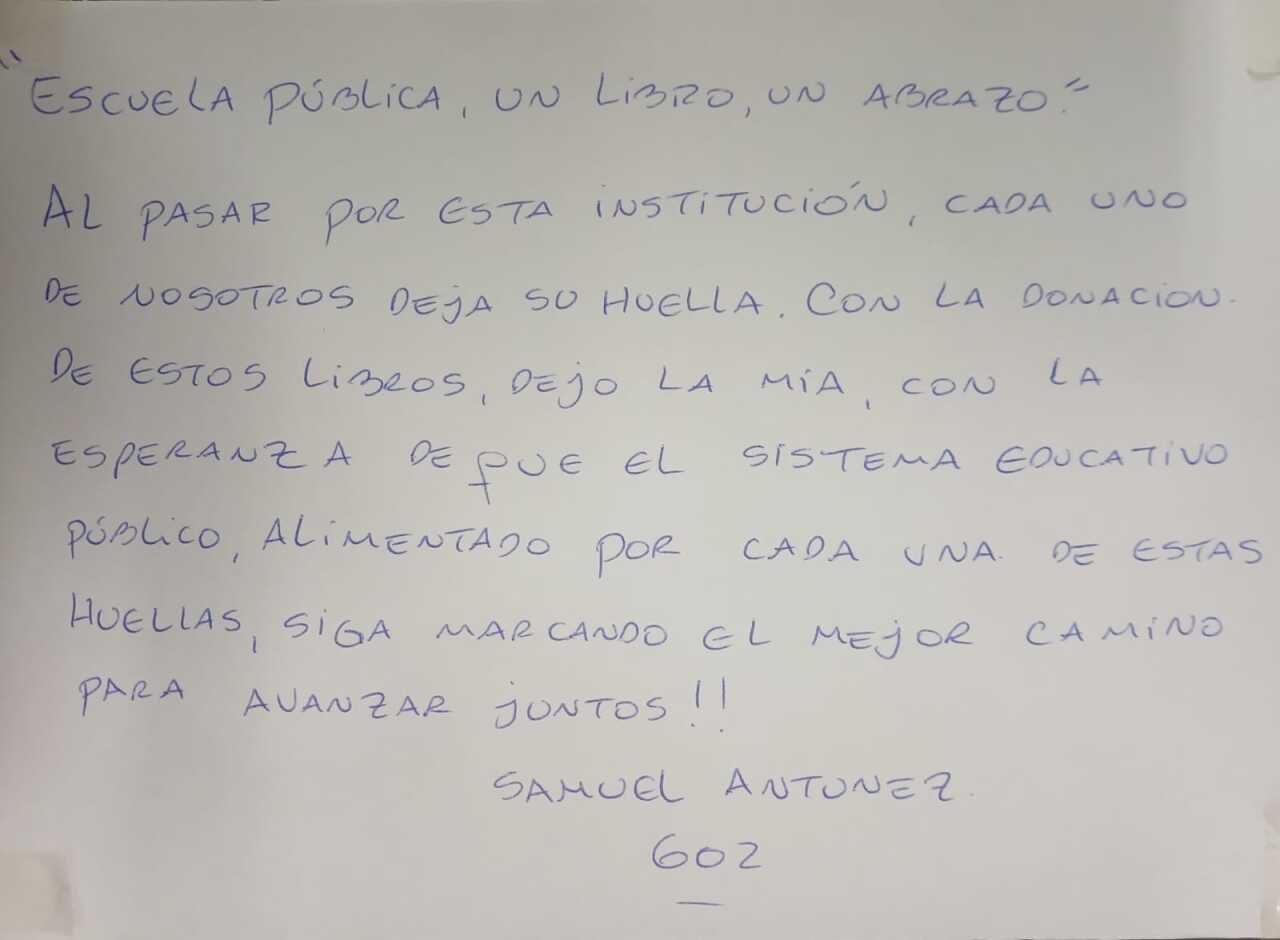 "ESCUELA PÚBLICA, UN LIBRO, UN ABRAZO."
AL PASAR POR ESTA INSTITUCIÓN, CADA UNO
DE NOSOTROS DEJA SU HUELLA. CON LA DONACION.
DE ESTOS LIBROS, DEJO LA MÍA, CON LA
ESPERANZA DE QUE EL SISTEMA EDUCATIVO
PÚBLICO, ALIMENTADO POR CADA UNA DE ESTAS
HUELLAS, SIGA MARCANDO EL MEJOR CAMINO
PARA AVANZAR JUNTOS!!
SAMUEL ANTUNEZ.
602